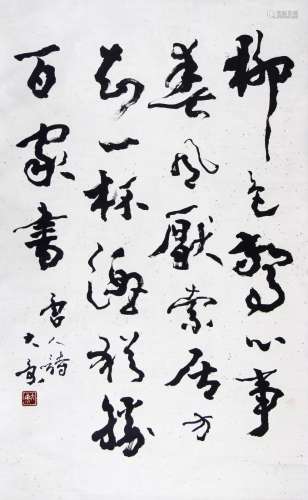 柳色驚心事
春風厭索居方
知一杯酒猶勝
百家書
唐人詩
大康